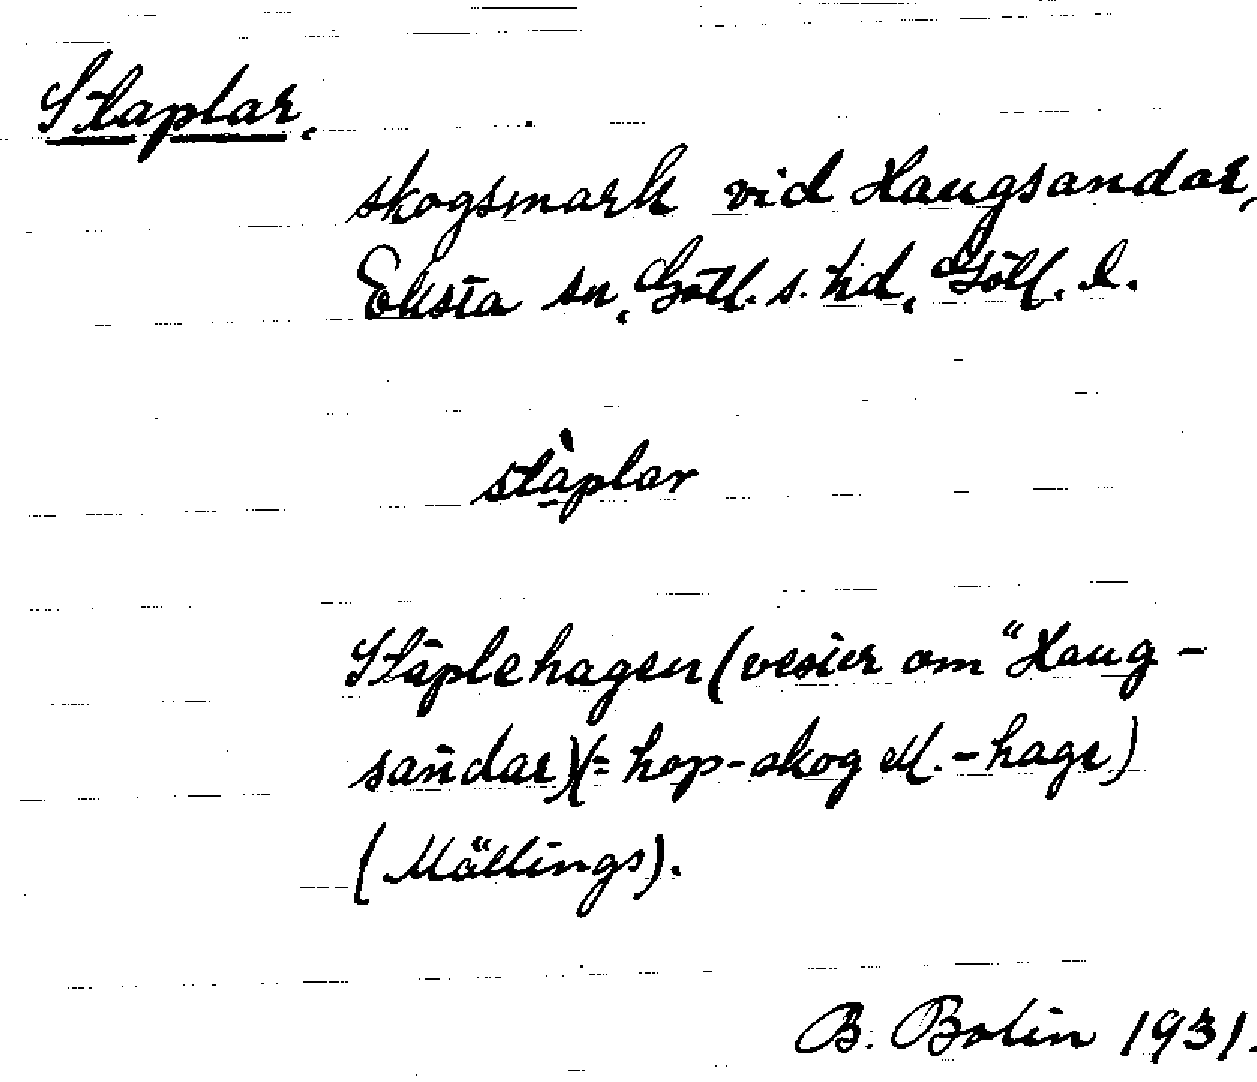 Staplar.
skogsmark vid Haugsandar,
Eksta sn, Gotl. s. hd, Gotl. l.
stàplar
Stāplehagen (väster om "Haug-
sandar) (= hop-skog el. -hage)
(Mällings).
B. Bolin 1931.